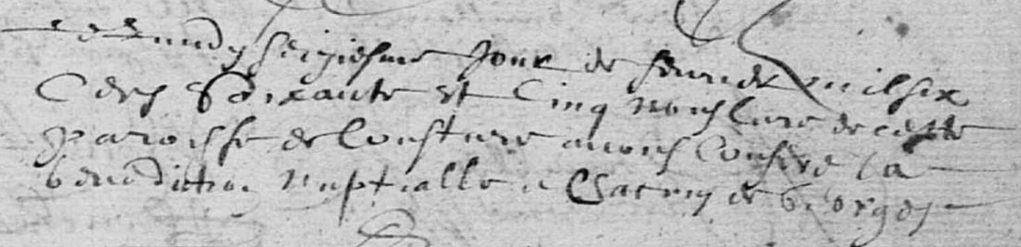 Le Lundy seiziesme Jour de feuvrier mil six
Cens Soixante et Cinq nous Cure de ceste
paroisse de Cousture avons Confere la
benediction Nuptialle a Chacun de Georges